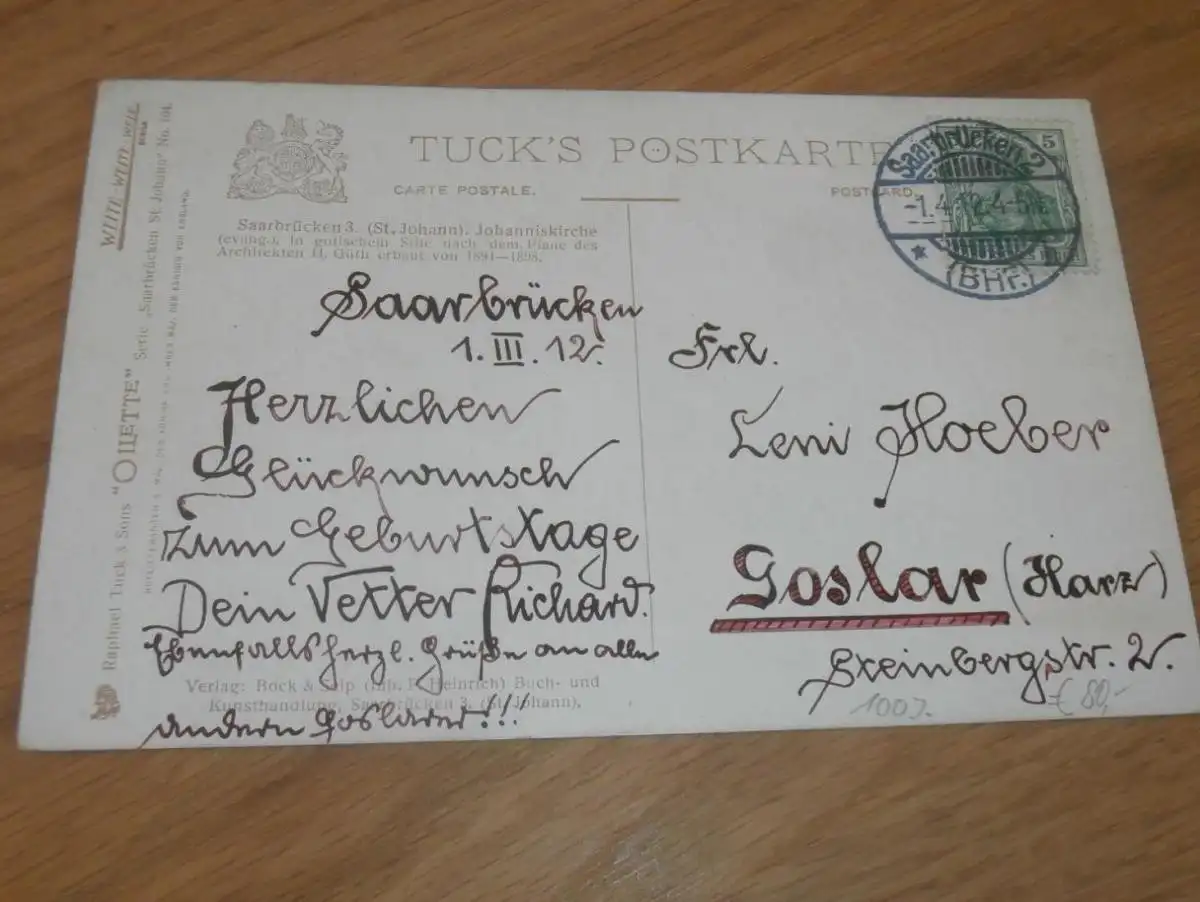 TUCK'S POSTKARTE
CARTE POSTALE.
POSTCARD.
5
Saarbrücken 2
-1.4.12. 4-5
(BHf.)
Saarbrücken 3. (St. Johann). Johanniskirche
(evang.). In gotischem Stile nach dem Plane des
Architekten H. Güth erbaut von 1891—1898.
Saarbrücken
1. III. 12.
Herzlichen
Glückwunsch
zum Geburtstage
Dein Vetter Richard.
Ebenfalls herzl. Grüße an alle
andern Goslarer!!!
Verlag: Bock & Seip (Inh. F. Heinrich) Buch- und
Kunsthandlung, Saarbrücken 3. (St. Johann).
Frl.
Leni Hoeber
Goslar (Harz)
Steinbergstr. 2.
€ 80,-
Raphael Tuck & Sons "OILETTE" Serie „Saarbrücken St. Johann" No. 104.